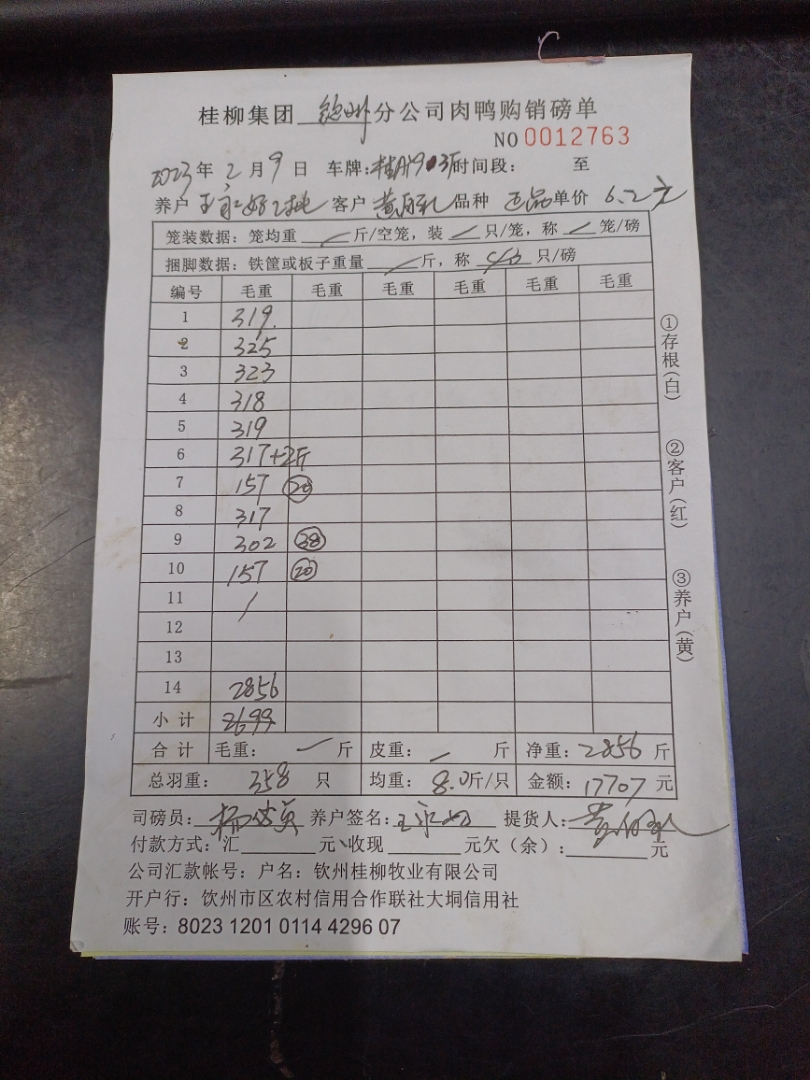 桂柳集团 钦州 分公司肉鸭购销磅单
NO 0012763
2023 年 2 月 9 日 车牌: 时间段: 至
养户 客户 品种 正品 单价 6.2元
笼装数据: 笼均重 / 斤/空笼, 装 / 只/笼, 称 / 笼/磅
捆脚数据: 铁筐或板子重量 / 斤, 称 40 只/磅
编号 毛重 毛重 毛重 毛重 毛重 毛重
1 319.
2 325
3 323
4 318
5 319
6 317+2斤
7 157 20
8 317
9 302 38
10 157 20
11 /
12
13
14 2856
小计 2699
合计 毛重: — 斤 皮重: — 斤 净重: 2856 斤
总羽重: 358 只 均重: 8.0斤/只 金额: 17707 元
司磅员: 养户签名: 提货人:
付款方式: 汇 元、收现 元欠（余）: 元
公司汇款帐号: 户名: 钦州桂柳牧业有限公司
开户行: 饮州市区农村信用合作联社大垌信用社
账号: 8023 1201 0114 4296 07
①存根(白)
②客户(红)
③养户(黄)